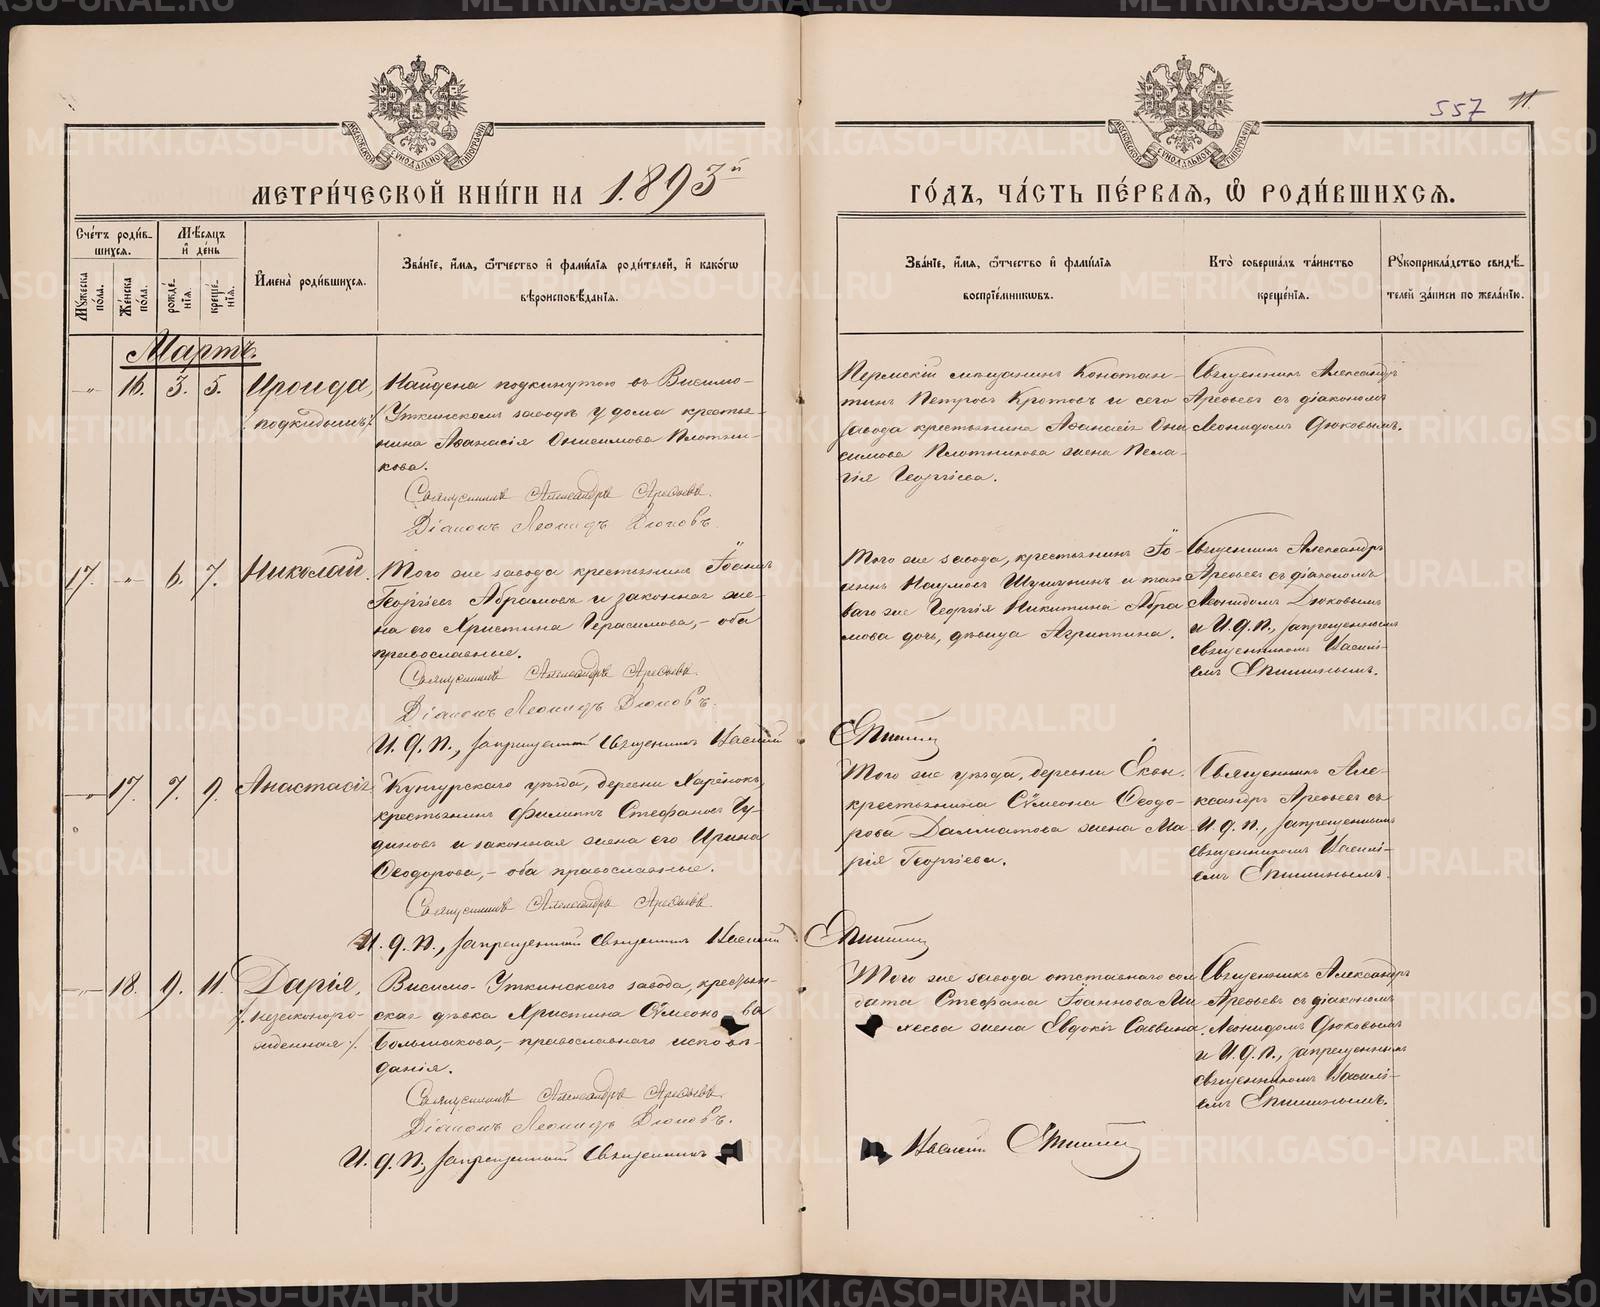 557 11.
МЕТРИ́ЧЕСКОЙ КНИ́ГИ НА 1893й ГО́ДЪ, ЧА́СТЬ ПЕ́РВАЯ, Ѽ РОДИ́ВШИХСЯ.
Сче́тъ роди́в-
шихся.
Мꙋжеска по́ла.
Же́нска по́ла.
Мѣ́сяцъ и де́нь
рожде́-
нїя.
креще́-
нїя.
И҆мена̀ роди́вшихся.
Зва́нїе, и҆́мя, ѻ҆́тчество и҆ фами́лїя роди́телей, и҆ како́гѡ
вѣроисповѣ́данїя.
Зва́нїе, и҆́мя, ѻ҆́тчество и҆ фами́лїя
воспрїе́мникѡвъ.
Кто̀ соверша́лъ та́инство
креще́нїя.
Рꙋкоприкла́дство свидѣ́-
телей за́писи по жела́нїю.
Мартъ.
-"- 16. 3. 5. Ироида,
/подкидышъ/.
Найдена подкинутою въ Висимо-
Уткинскомъ заводѣ у дома крестья-
нина Аѳанасія Онисимова Плотни-
кова.
Священникъ Александръ Арефьевъ.
Діаконъ Леонидъ Дюковъ.
Пермскій мѣщанинъ Констан-
тинъ Петровъ Кротовъ и сего
завода крестьянина Аѳанасія Они
симова Плотникова жена Пела-
гія Георгіева.
Священникъ Александръ
Арефьевъ съ діакономъ
Леонидомъ Дюковымъ.
17. -"- 6. 7. Николай.
Того же завода крестьянинъ Іоаннъ
Георгіевъ Абрамовъ и законная же-
на его Христина Герасимова,- оба
православные.
Священникъ Александръ Арефьевъ.
Діаконъ Леонидъ Дюковъ.
И. д. п., запрещенный Священникъ Василій Епишинъ
Того же завода, крестьянинъ Іо-
аннъ Наумовъ Шушунинъ и так
ваго же Георгія Никитина Абра
мова дочь, дѣвица Агриппина.
Священникъ Александръ
Арефьевъ съ діакономъ
Леонидомъ Дюковымъ
и И. д. п., запрещеннымъ
священникомъ Василі-
емъ Епишинымъ.
-"- 17. 7. 9. Анастасія
Кунгурскаго уѣзда, деревни
крестьянинъ Филиппъ Стефановъ Чу-
диновъ и законная жена его Ирина
Ѳеодорова,- оба православные.
Священникъ Александръ Арефьевъ.
И. д. п., запрещенный Священникъ Василій Епишинъ
Того же уѣзда, деревни
крестьянина Сѵмеона Ѳеодо-
рова Далматова жена Ма-
рія Георгіева.
Священникъ Але-
ксандръ Арефьевъ съ
И. д. п., запрещеннымъ
священникомъ Василі-
емъ Епишинымъ.
-"- 18. 9. 11. Дарія,
/незаконоро-
жденная/.
Висимо-Уткинскаго завода, крестьян-
ская дѣвка Христина Сѵмеонова
Большакова,- православнаго исповѣ-
данія.
Священникъ Александръ Арефьевъ.
Діаконъ Леонидъ Дюковъ.
И. д. п., запрещенный Священникъ Василій Епишинъ
Того же завода отставнаго сол
дата Стефана Іоаннова Ми
хеева жена Евдокія Саввина.
Священникъ Александръ
Арефьевъ съ діакономъ
Леонидомъ Дюковымъ
и И. д. п., запрещеннымъ
священникомъ Василі-
емъ Епишинымъ.
METRIKI.GASO-URAL.RU